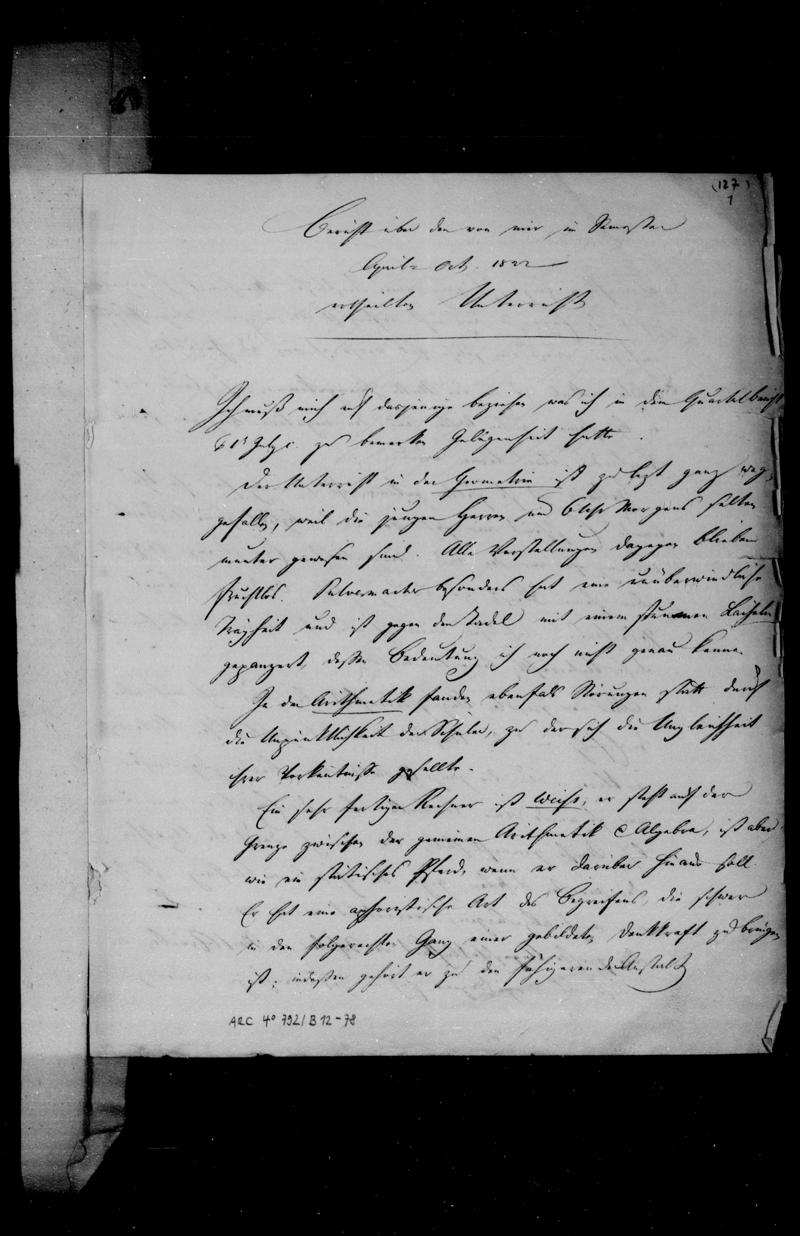 (127)
1
Bericht über den von mir im Semester
April – Oct. 1822
ertheilten Unterricht
Ich muß mich auf dasjenige beziehen was ich in dem Quartalbericht
d 1t July c. zu bemerken Gelegenheit hatte.
Der Unterricht in der Geometrie ist zuletzt ganz weg-
gefallen, weil die jungen Herren um 6 Uhr Morgens selten
munter gewesen sind. Alle Vorstellungen dagegen blieben
fruchtlos. besonders hat eine unüberwindliche
Trägheit und ist gegen den Tadel mit einem stummen Lächeln
gepanzert, dessen Bedeutung ich noch nicht genau kenne.
In der Arithmetik fanden ebenfals Störungen statt durch
die Unpünktlichkeit der Schüler, zu der sich die Ungleichheit
ihrer Vorkentnisse gesellte.
Ein sehr fertiger Rechner ist er steht auf der
Grenze zwischen der gemeinen Arithmetik & Algebra, ist aber
wie ein stätisches Pferd, wenn er darüber hinaus soll.
Er hat eine aphoristische Art des Begreifens, die schwer
in den folgerechten Gang einer gebildeten Denkkraft zu bringen
ist; indessen gehört er zu den fähigeren der Anstalt
ARC 4° 792/B 12-78